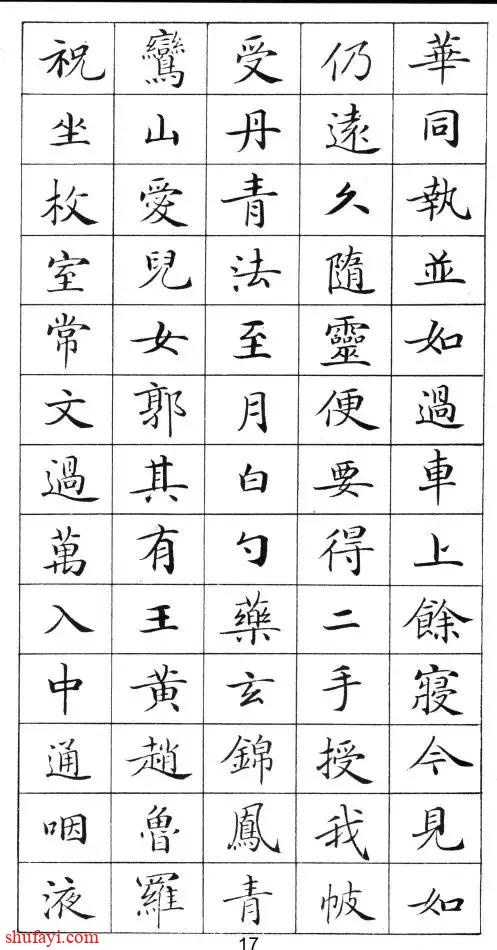 華同執並如過車上餘寢今見如
仍遠久隨靈便要得二手授我帔
受丹青法至月白勺藥玄錦鳳青
鸞山愛兒女郭其有王黄趙魯羅
祝坐枚室常文過萬入中通咽液
shufayi.com
17